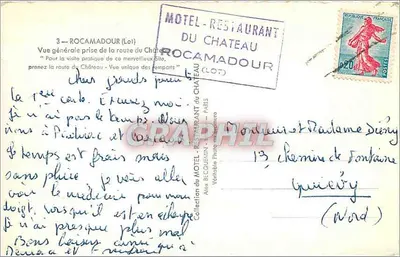 3 - ROCAMADOUR (Lot)
Vue générale prise de la route du Château
"Pour la visite pratique de ce merveilleux site,
prenez la route du Château - Vue unique des remparts"
MOTEL - RESTAURANT
DU CHATEAU
ROCAMADOUR
(LOT)
REPUBLIQUE FRANÇAISE
0,20
Chers grands parents
La carte. Excusez moi.
Je n'ai pas le temps. Nous
à Padirac et
le temps est frais mais
sans pluie. Je vais aller
voir le médecin pour mon
doigt, lorsqu'il est en
Je n'ai presque plus mal
Bons baisers ainsi qu'à
et
Collection du MOTEL - RESTAURANT du CHATEAU
PARIS
Véritable
Monsieur et Madame
13, Chemin de Fontaine
Quiévy
(Nord)
CPARAMA